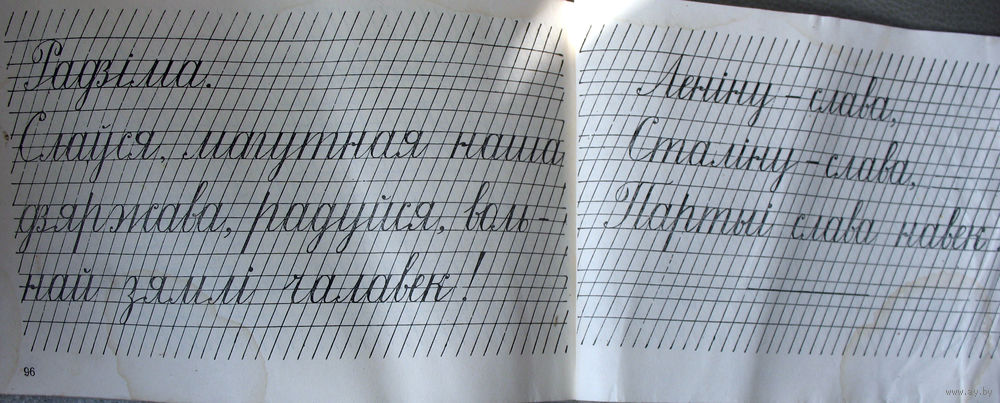 Радзіма.
Слаўся, магутная наша
дзяржава, радуйся, воль-
най зямлі чалавек!
96
Леніну – слава,
Сталіну – слава,
Партыі слава навек
www.ay.by